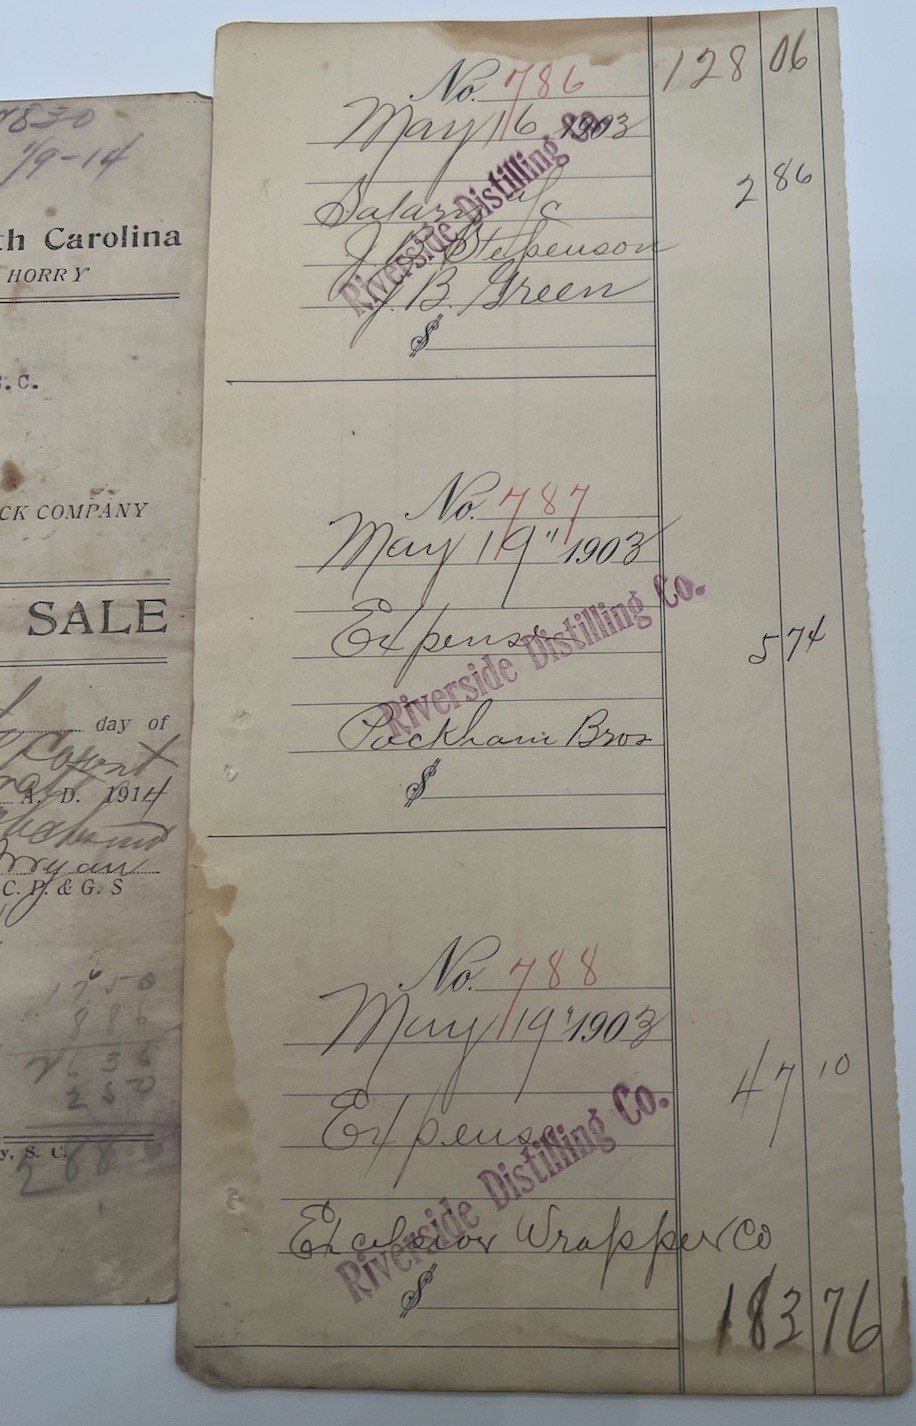 7830
1/9-14
th Carolina
HORRY
S.C.
CK COMPANY
SALE
day of
A. D. 1914
C. P. & G. S
1750
886
2636
250
y, S. C.
2886
128 06
No. 786
May 16 1903
Salary a/c
2 86
J. B. Stepenson
J. B. Green
$
Riverside Distilling Co.
No. 787
May 19" 1903
Expense
5 74
Packham Bros
$
Riverside Distilling Co.
No. 788
May 19" 1903
Expense
47 10
Excelsior Wrapper Co
$
Riverside Distilling Co.
183 76